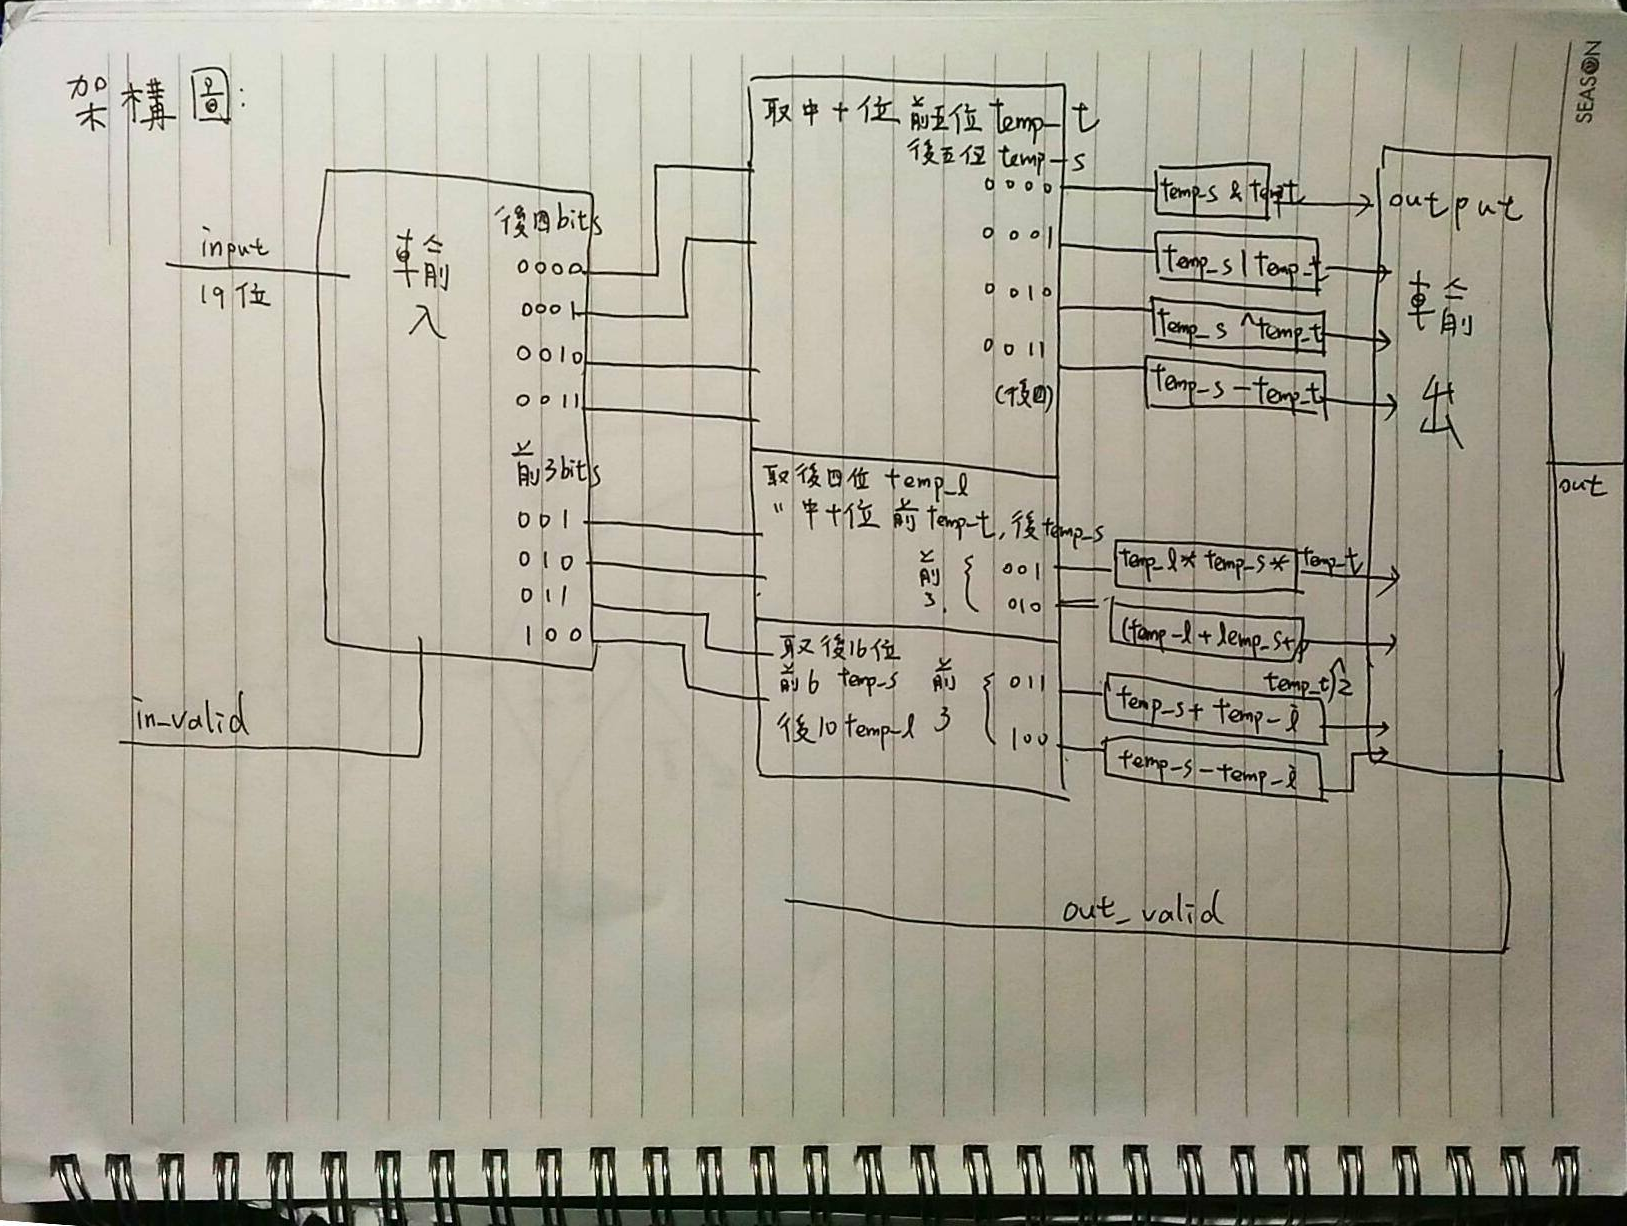 架構圖:
SEASON
input
19位
輸入
後四bits
0000
0001
0010
0011
前3bits
001
010
011
100
in_valid
取中十位 前五位 temp_t
後五位 temp_s
0000
0001
0010
0011
(後四)
取後四位 temp_l
〃 中十位 前temp_t, 後temp_s
前3
001
010
取後16位
前6 temp_s
後10 temp_l
前3
011
100
temp_s & temp_t
temp_s | temp_t
temp_s ^ temp_t
temp_s - temp_t
temp_l * temp_s * temp_t
(temp_l + temp_s +
temp_t)^2
temp_s + temp_l
temp_s - temp_l
output
輸出
out
out_valid